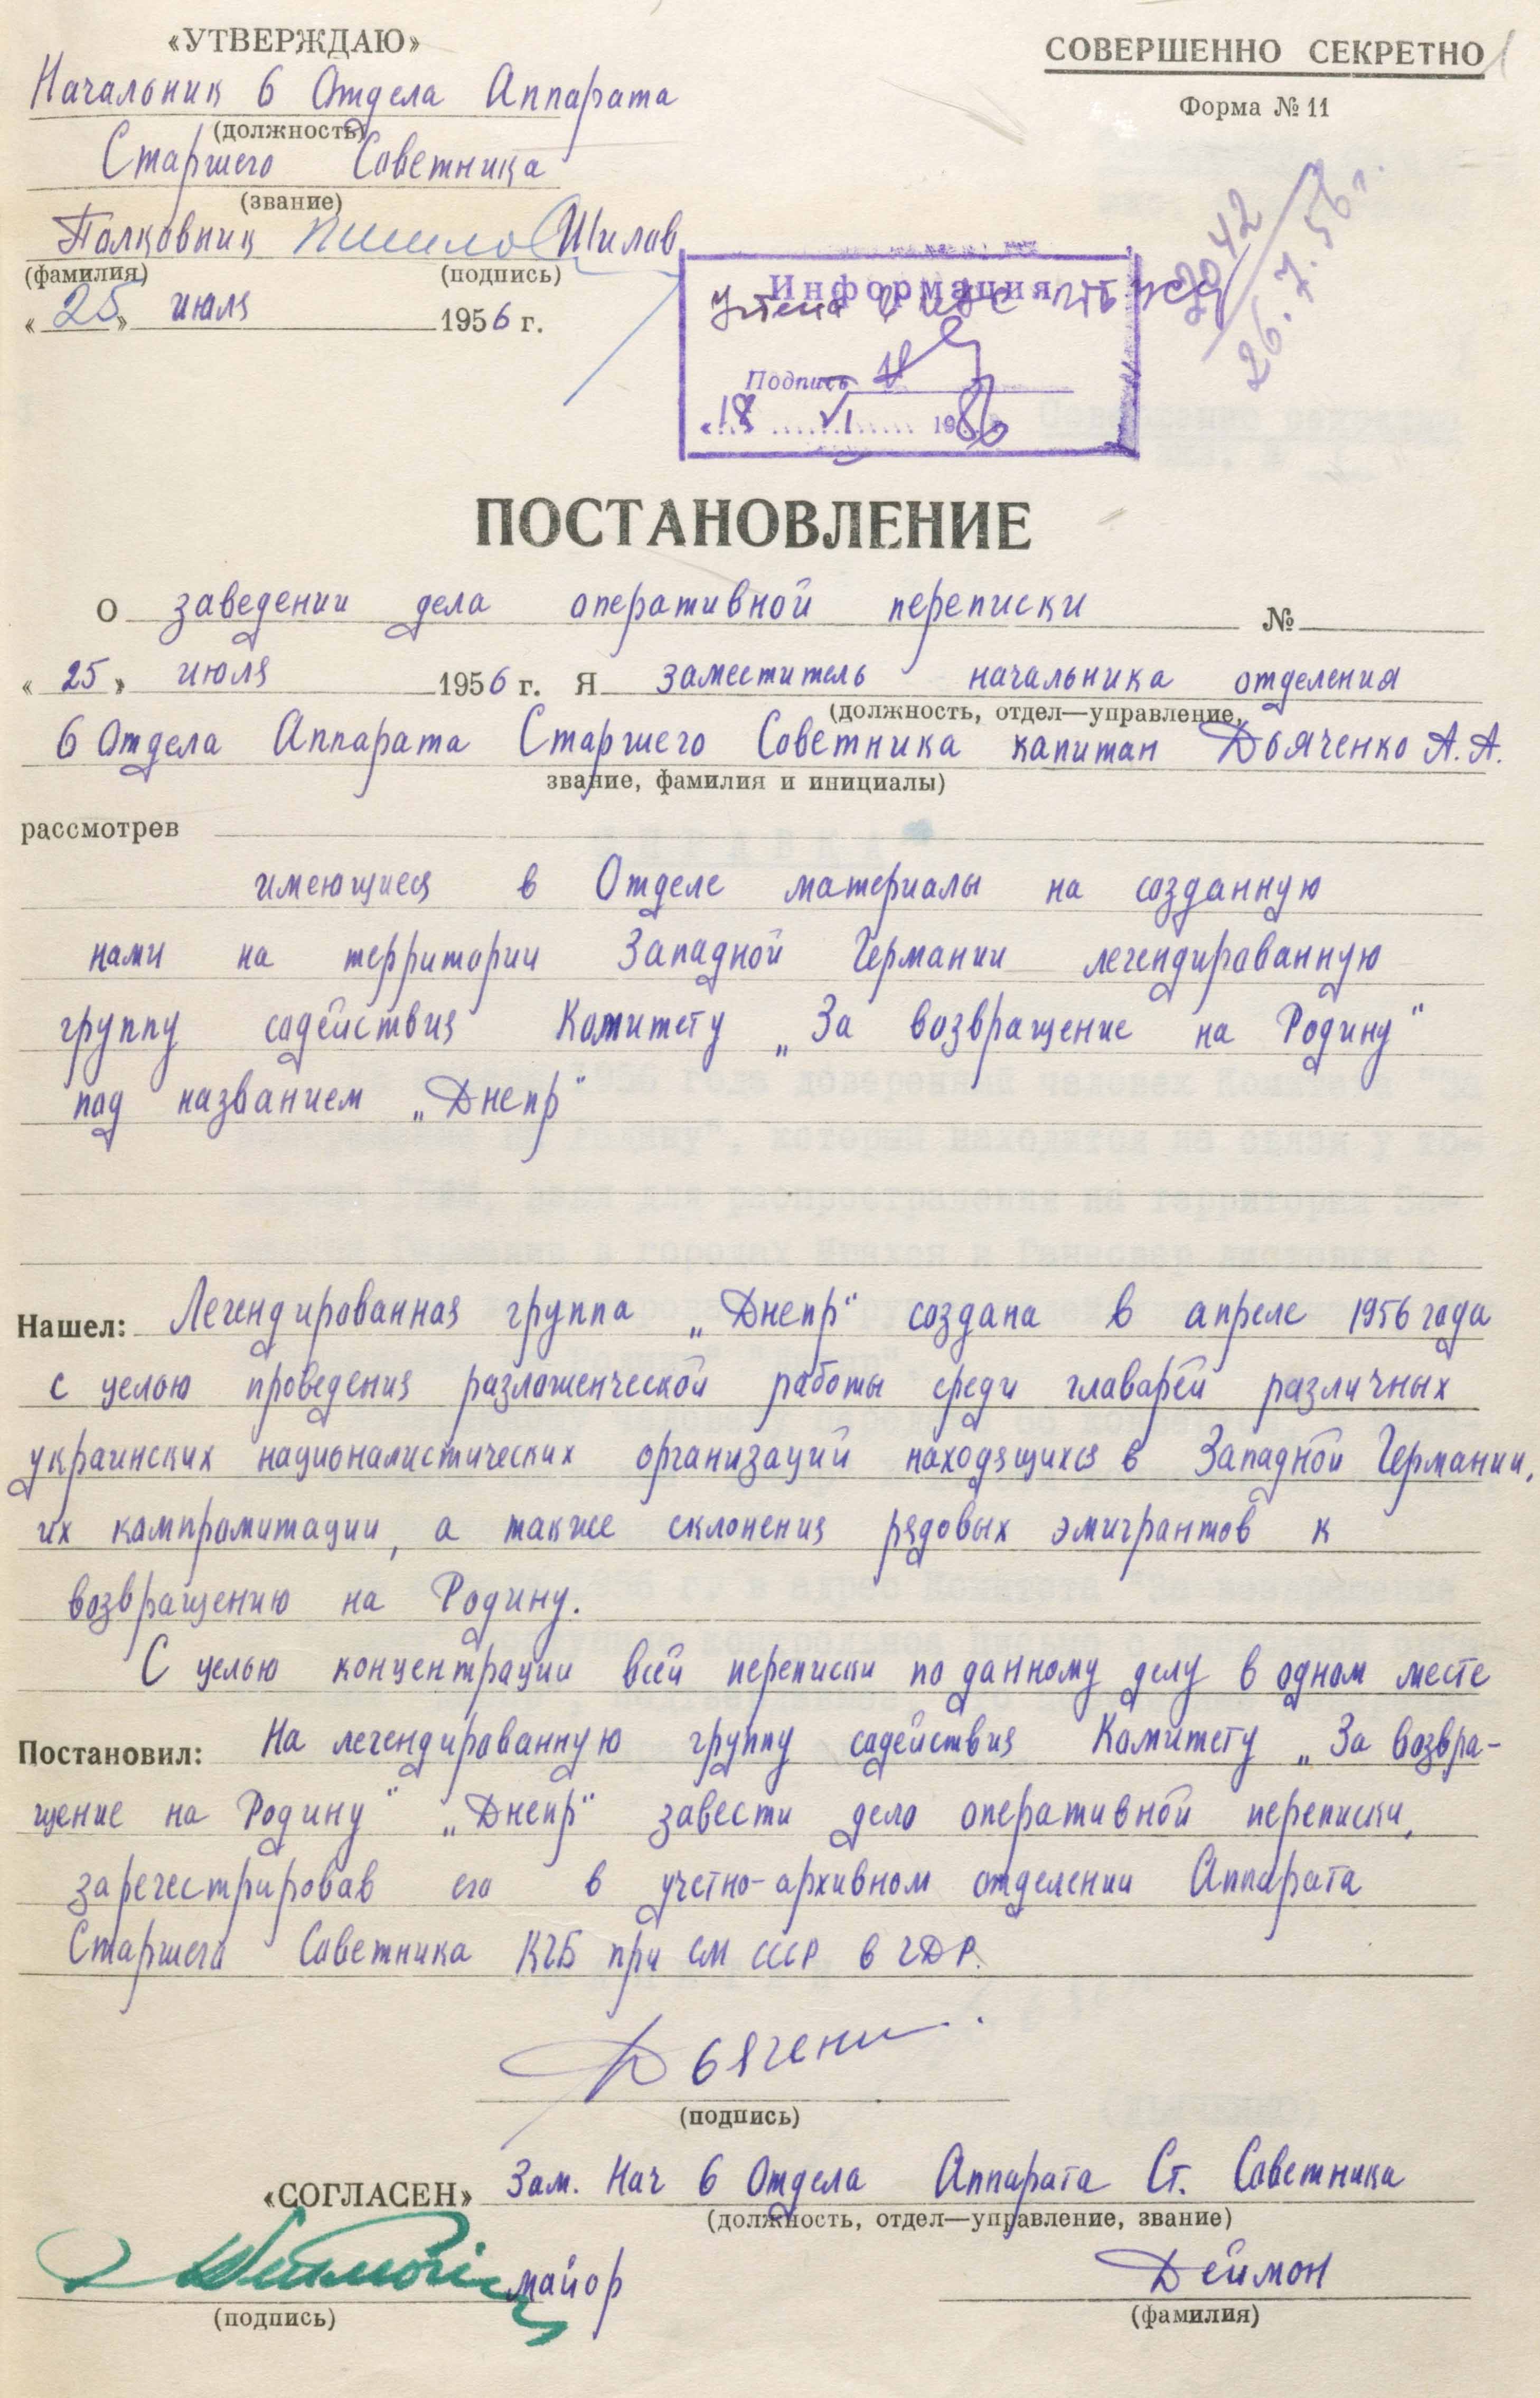 «УТВЕРЖДАЮ»
СОВЕРШЕННО СЕКРЕТНО
Форма № 11
Начальник 6 Отдела Аппарата
(должность)
Старшего Советника
(звание)
Полковник Шилов
(фамилия) (подпись)
«25» июля 1956 г.
2042
26.7.56 г.
Информация
Подпись
«18» VI 1986
ПОСТАНОВЛЕНИЕ
О заведении дела оперативной переписки №
«25» июля 1956 г. Я заместитель начальника отделения
(должность, отдел—управление,
6 Отдела Аппарата Старшего Советника капитан Дьяченко А.А.
звание, фамилия и инициалы)
рассмотрев
имеющиеся в Отделе материалы на созданную
нами на территории Западной Германии легендированную
группу содействия Комитету „За возвращение на Родину"
под названием „Днепр"
Нашел: Легендированная группа „Днепр" создана в апреле 1956 года
с целью проведения разложенческой работы среди главарей различных
украинских националистических организаций находящихся в Западной Германии,
их компромитации, а также склонения рядовых эмигрантов к
возвращению на Родину.
С целью концентрации всей переписки по данному делу в одном месте
Постановил: На легендированную группу содействия Комитету „За возвра-
щение на Родину" „Днепр" завести дело оперативной переписки,
зарегестрировав его в учетно-архивном отделении Аппарата
Старшего Советника КГБ при СМ СССР в ГДР.
Дьяченк
(подпись)
«СОГЛАСЕН» Зам. Нач 6 Отдела Аппарата Ст. Советника
(должность, отдел—управление, звание)
майор Деймон
(подпись) (фамилия)